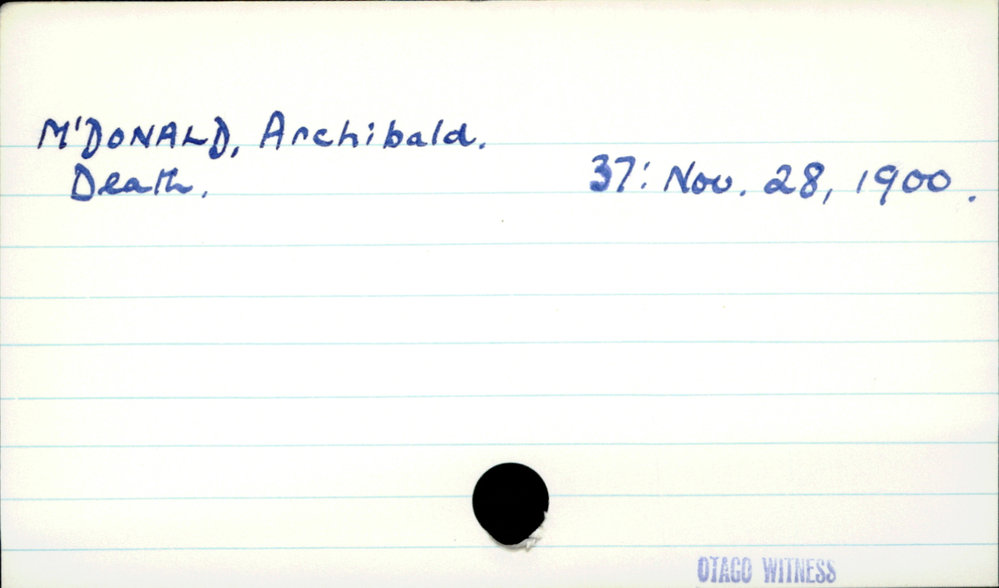 M'DONALD, Archibald.
Death. 37: Nov. 28, 1900.
OTAGO WITNESS